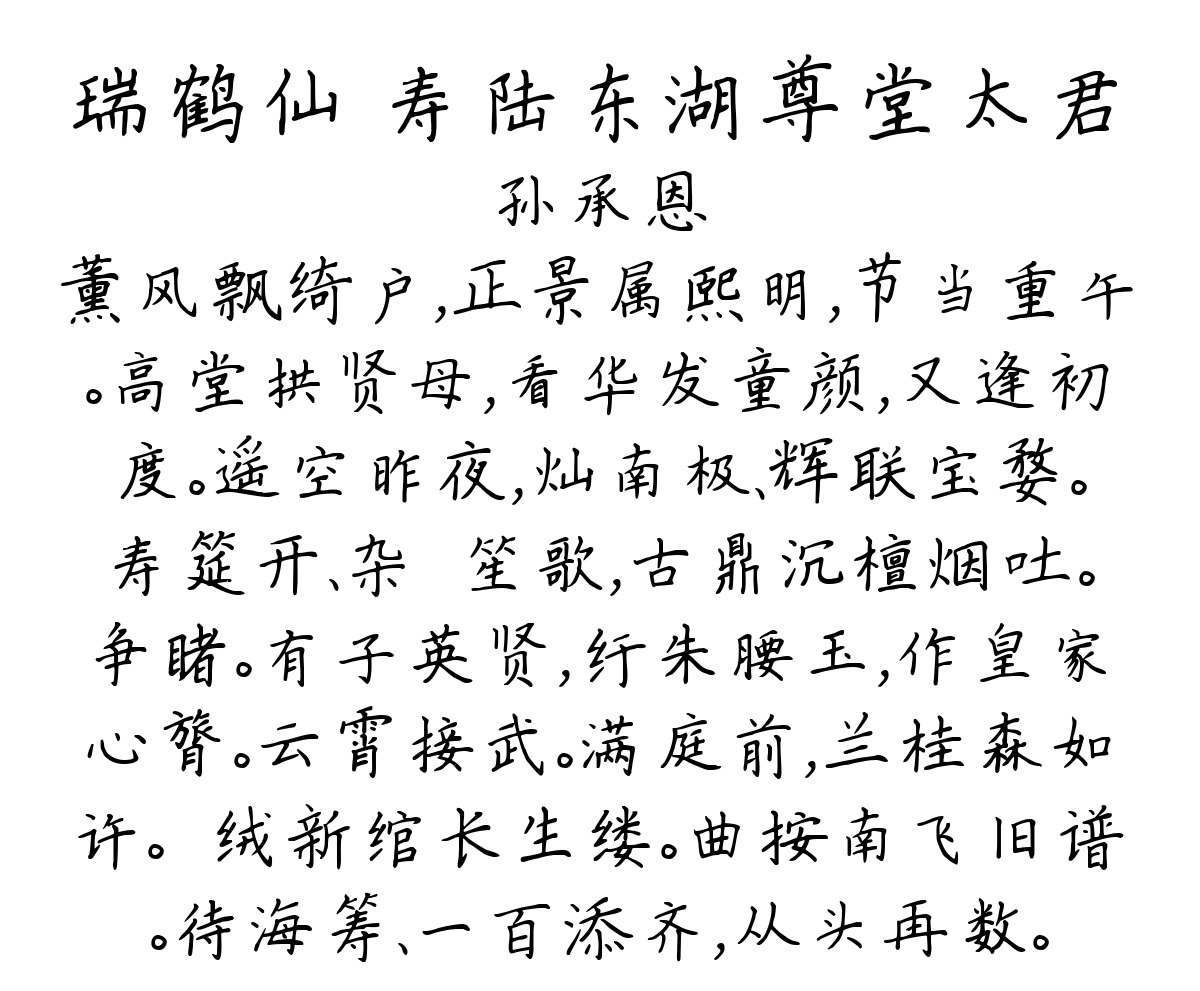 瑞鹤仙 寿陆东湖尊堂太君
孙承恩
薰风飘绮户,正景属熙明,节当重午
。高堂拱贤母,看华发童颜,又逢初
度。遥空昨夜,灿南极、辉联宝婺。
寿筵开、杂 笙歌,古鼎沉檀烟吐。
争睹。有子英贤,纡朱腰玉,作皇家
心膂。云霄接武。满庭前,兰桂森如
许。 绒新绾长生缕。曲按南飞旧谱
。待海筹、一百添齐,从头再数。